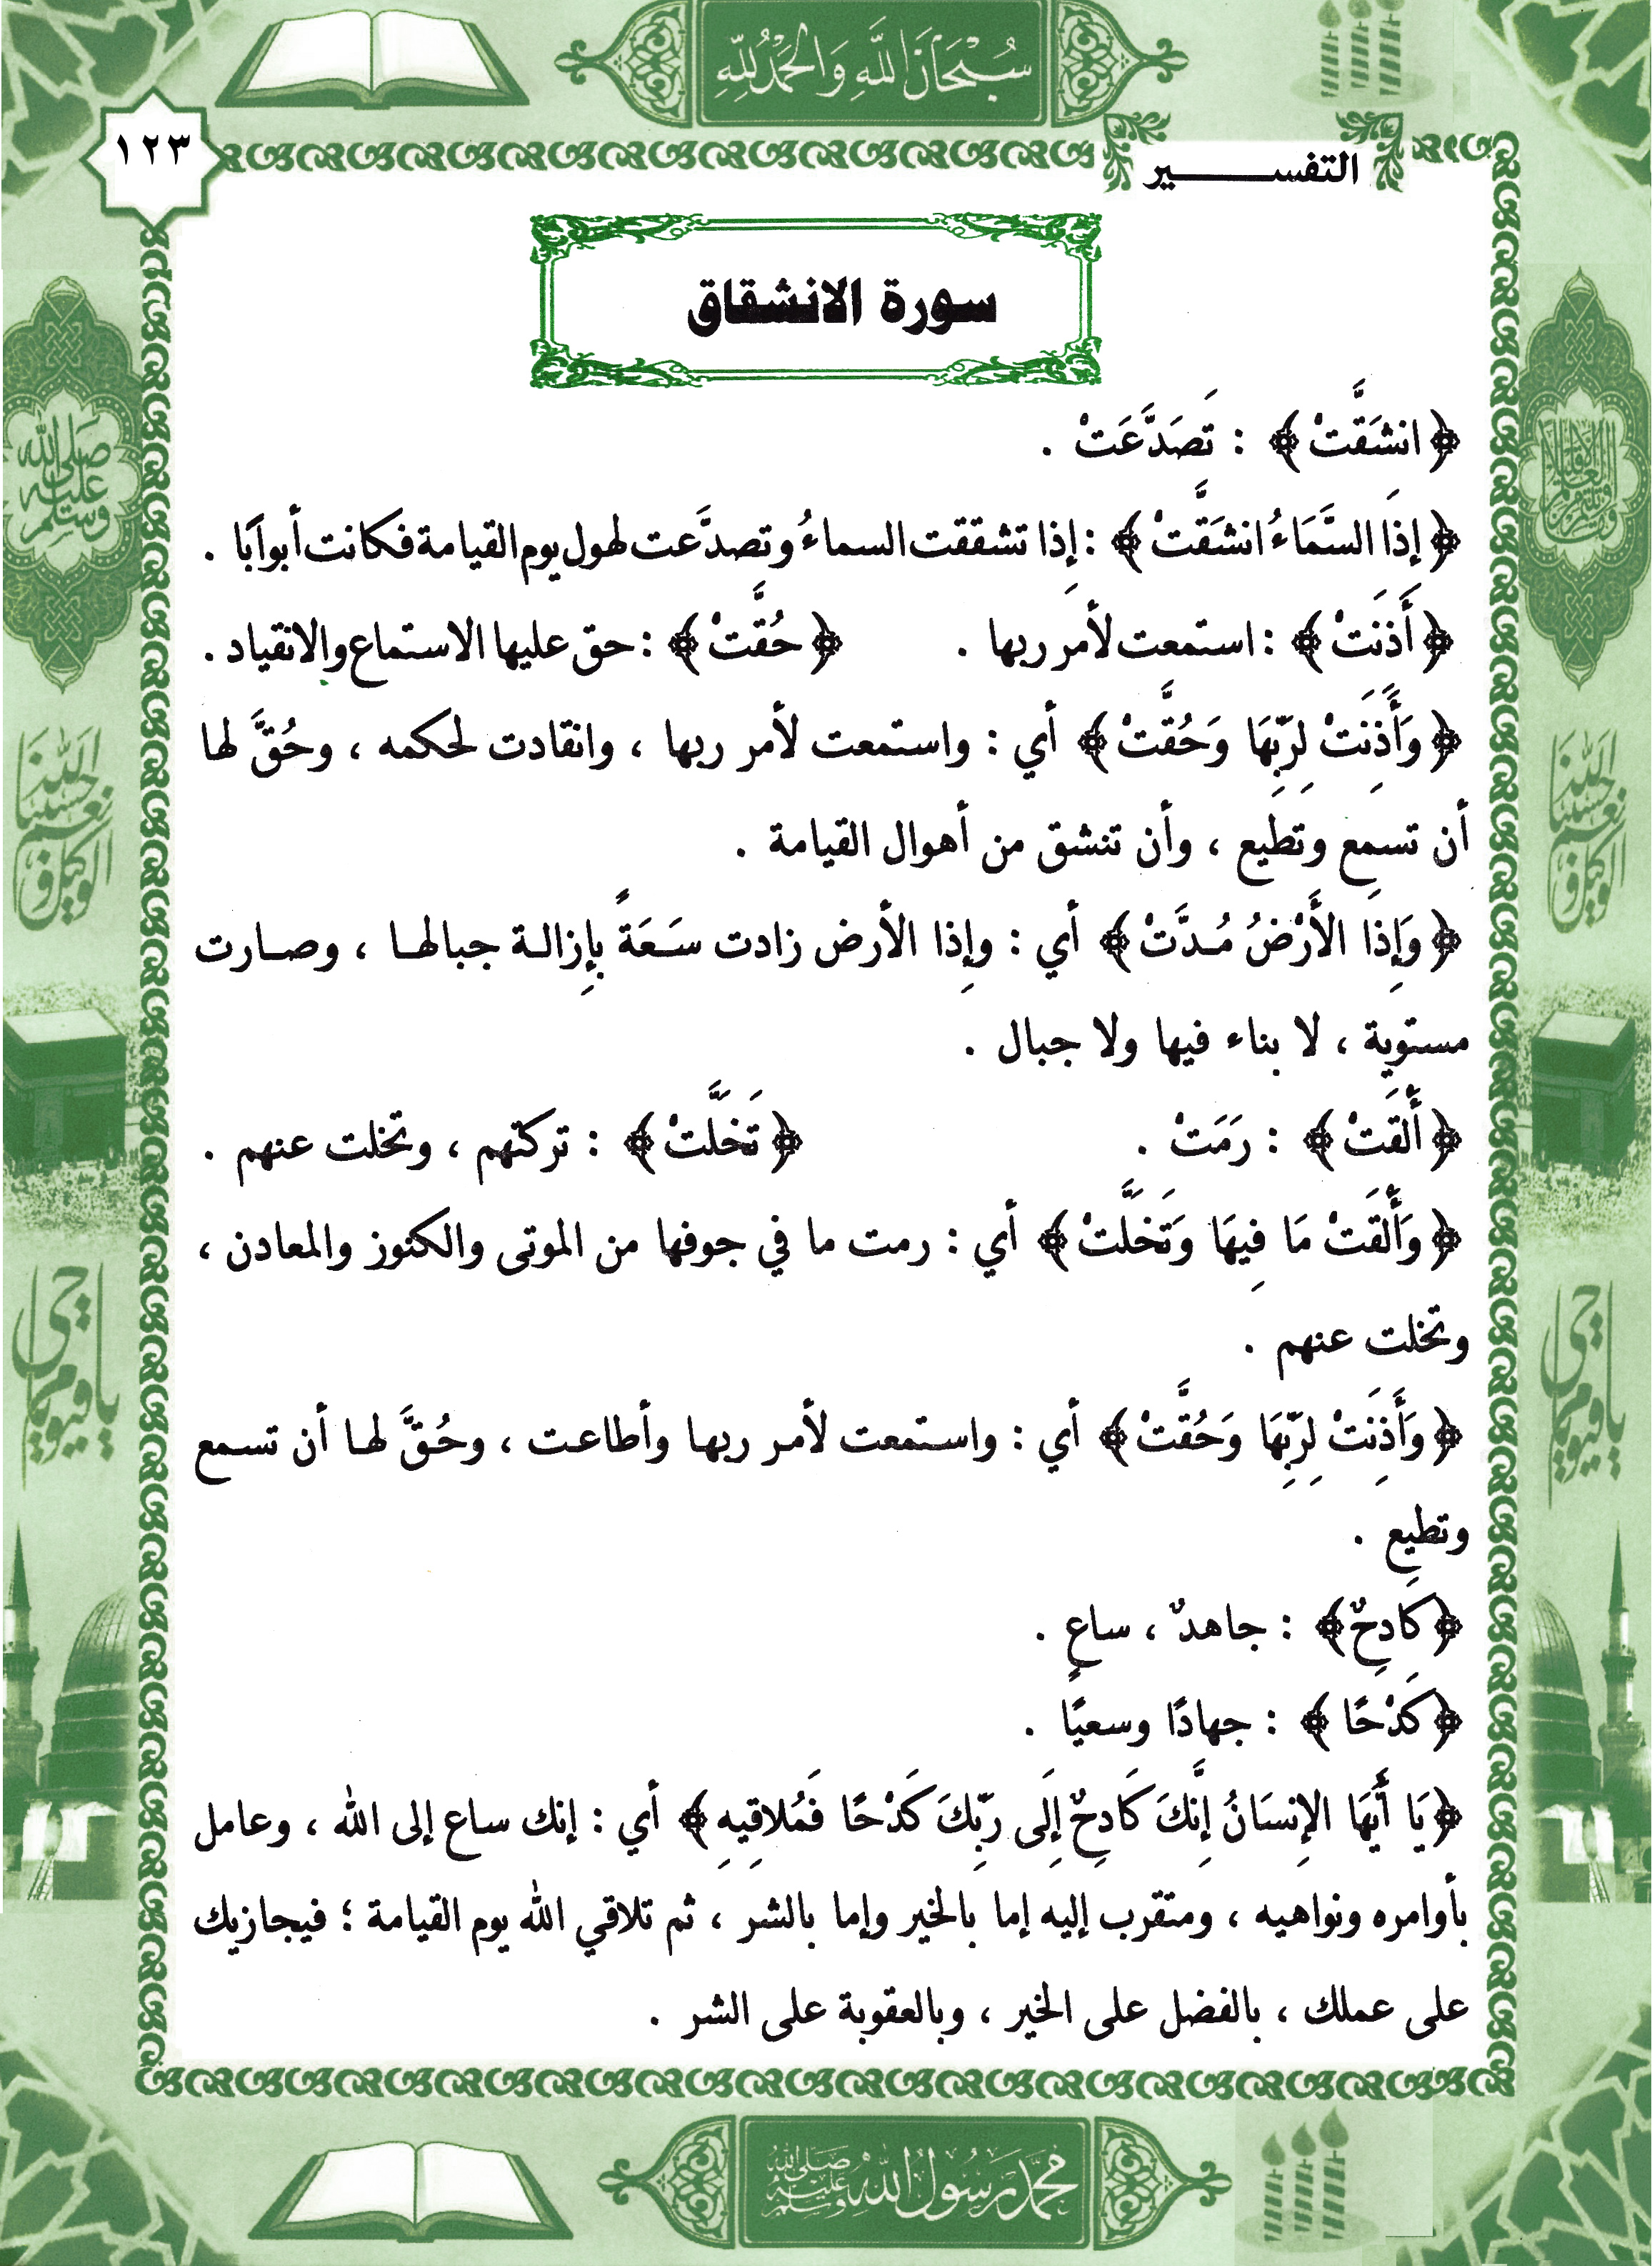 سُبْحَانَ اللَّهِ وَالْحَمْدُ لِلَّهِ
١٢٣
التفسير
سورة الانشقاق
﴿انشَقَّتْ﴾ : تَصَدَّعَتْ .
﴿إِذَا السَّمَاءُ انشَقَّتْ﴾ : إِذا تشققت السماءُ وتصدَّعت لهول يوم القيامة فكانت أبوابًا .
﴿أَذِنَتْ﴾ : استمعت لأمر ربها . ﴿حُقَّتْ﴾ : حق عليها الاستماع والانقياد .
﴿وَأَذِنَتْ لِرَبِّهَا وَحُقَّتْ﴾ أي : واستمعت لأمر ربها ، وانقادت لحكمه ، وحُقَّ لها
أن تسمع وتطيع ، وأن تنشق من أهوال القيامة .
﴿وَإِذَا الأَرْضُ مُدَّتْ﴾ أي : وإِذا الأرض زادت سَعَةً بإِزالة جبالها ، وصارت
مستوية ، لا بناء فيها ولا جبال .
﴿أَلْقَتْ﴾ : رَمَتْ . ﴿تَخَلَّتْ﴾ : تركتهم ، وتخلت عنهم .
﴿وَأَلْقَتْ مَا فِيهَا وَتَخَلَّتْ﴾ أي : رمت ما في جوفها من الموتى والكنوز والمعادن ،
وتخلت عنهم .
﴿وَأَذِنَتْ لِرَبِّهَا وَحُقَّتْ﴾ أي : واستمعت لأمر ربها وأطاعت ، وحُقَّ لها أن تسمع
وتطيع .
﴿كَادِحٌ﴾ : جاهدٌ ، ساعٍ .
﴿كَدْحًا﴾ : جهادًا وسعيًا .
﴿يَا أَيُّهَا الإِنسَانُ إِنَّكَ كَادِحٌ إِلَى رَبِّكَ كَدْحًا فَمُلاقِيهِ﴾ أي : إنك ساع إلى الله ، وعامل
بأوامره ونواهيه ، ومتقرب إليه إما بالخير وإما بالشر ، ثم تلاقي الله يوم القيامة ؛ فيجازيك
على عملك ، بالفضل على الخير ، وبالعقوبة على الشر .
صلى الله عليه وسلم
حسبنا الله ونعم الوكيل
حسبنا الله ونعم الوكيل
يا حي يا قيوم
يا حي يا قيوم
محمد رسول الله صلى الله عليه وسلم